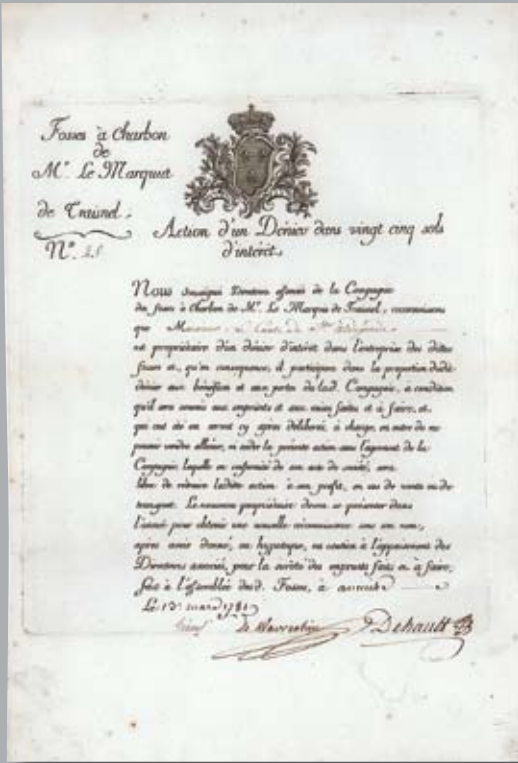 Fosses à Charbon
de
Mr. Le Marquis
de Traisnel.
No. 25
Action d'un Dénier dans vingt cinq sols
d'intérêt.
Nous Soussignés Directeurs associés de la Compagnie
des fosses à Charbon de Mr. Le Marquis de Traisnel, reconnaissons
que M
est propriétaire d'un dénier d'intérêt dans l'entreprise des dittes
fosses et, qu'en conséquence, il participera dans la proportion dudit
dénier aux bénéfices et aux pertes de lad. Compagnie, à condition
qu'il sera soumis aux emprunts et aux mises faites et à faire, et
qui ont été ou seront cy après délibérés, à charge, en outre de ne
pouvoir vendre aliéner, ni céder la présente action sans l'agrément de la
Compagnie laquelle en conformité de son acte de société, sera
libre de retraire ladite action à son profit, en cas de vente ou de
transport. Le nouveau propriétaire devra se présenter dans
l'année pour obtenir une nouvelle reconnaissance sous son nom,
après avoir donné, en hypotèque, ou caution à l'appaisement des
Directeurs associés, pour la sûreté des emprunts faits ou à faire,
fait à l'assemblée desd. Fosses, à
Le 13 mars 1781
de Wavrechin Dehault